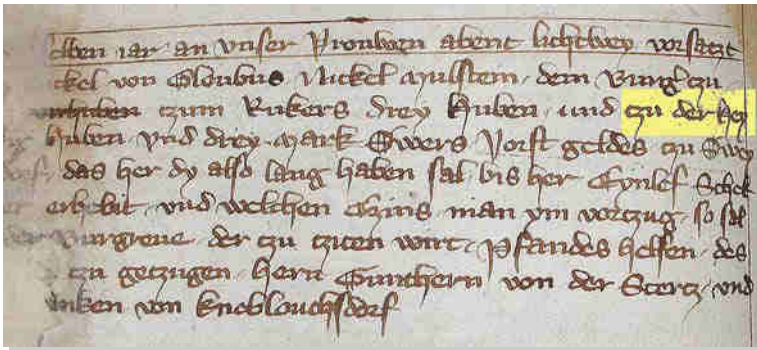 selben iar an vnser Vrouwen abent lichtwey vorsaczt
ckel von Gloubus Nickel Mulstein dem Burg czu
czum Rukers drey Huben und czu der Hey
Huben vnd drey mark Swers Vorst geldes czu Swey
das her dy also lang haben sal bis her Eynlef Schok
erhebit vnd welchen Czins man ym vorczug so sal
der Burgreue der czu cziten wirt Pfandes helfen des
czu geczugen hern Gunthern von der Stercz vnd
nken von Knoblouchsdorf